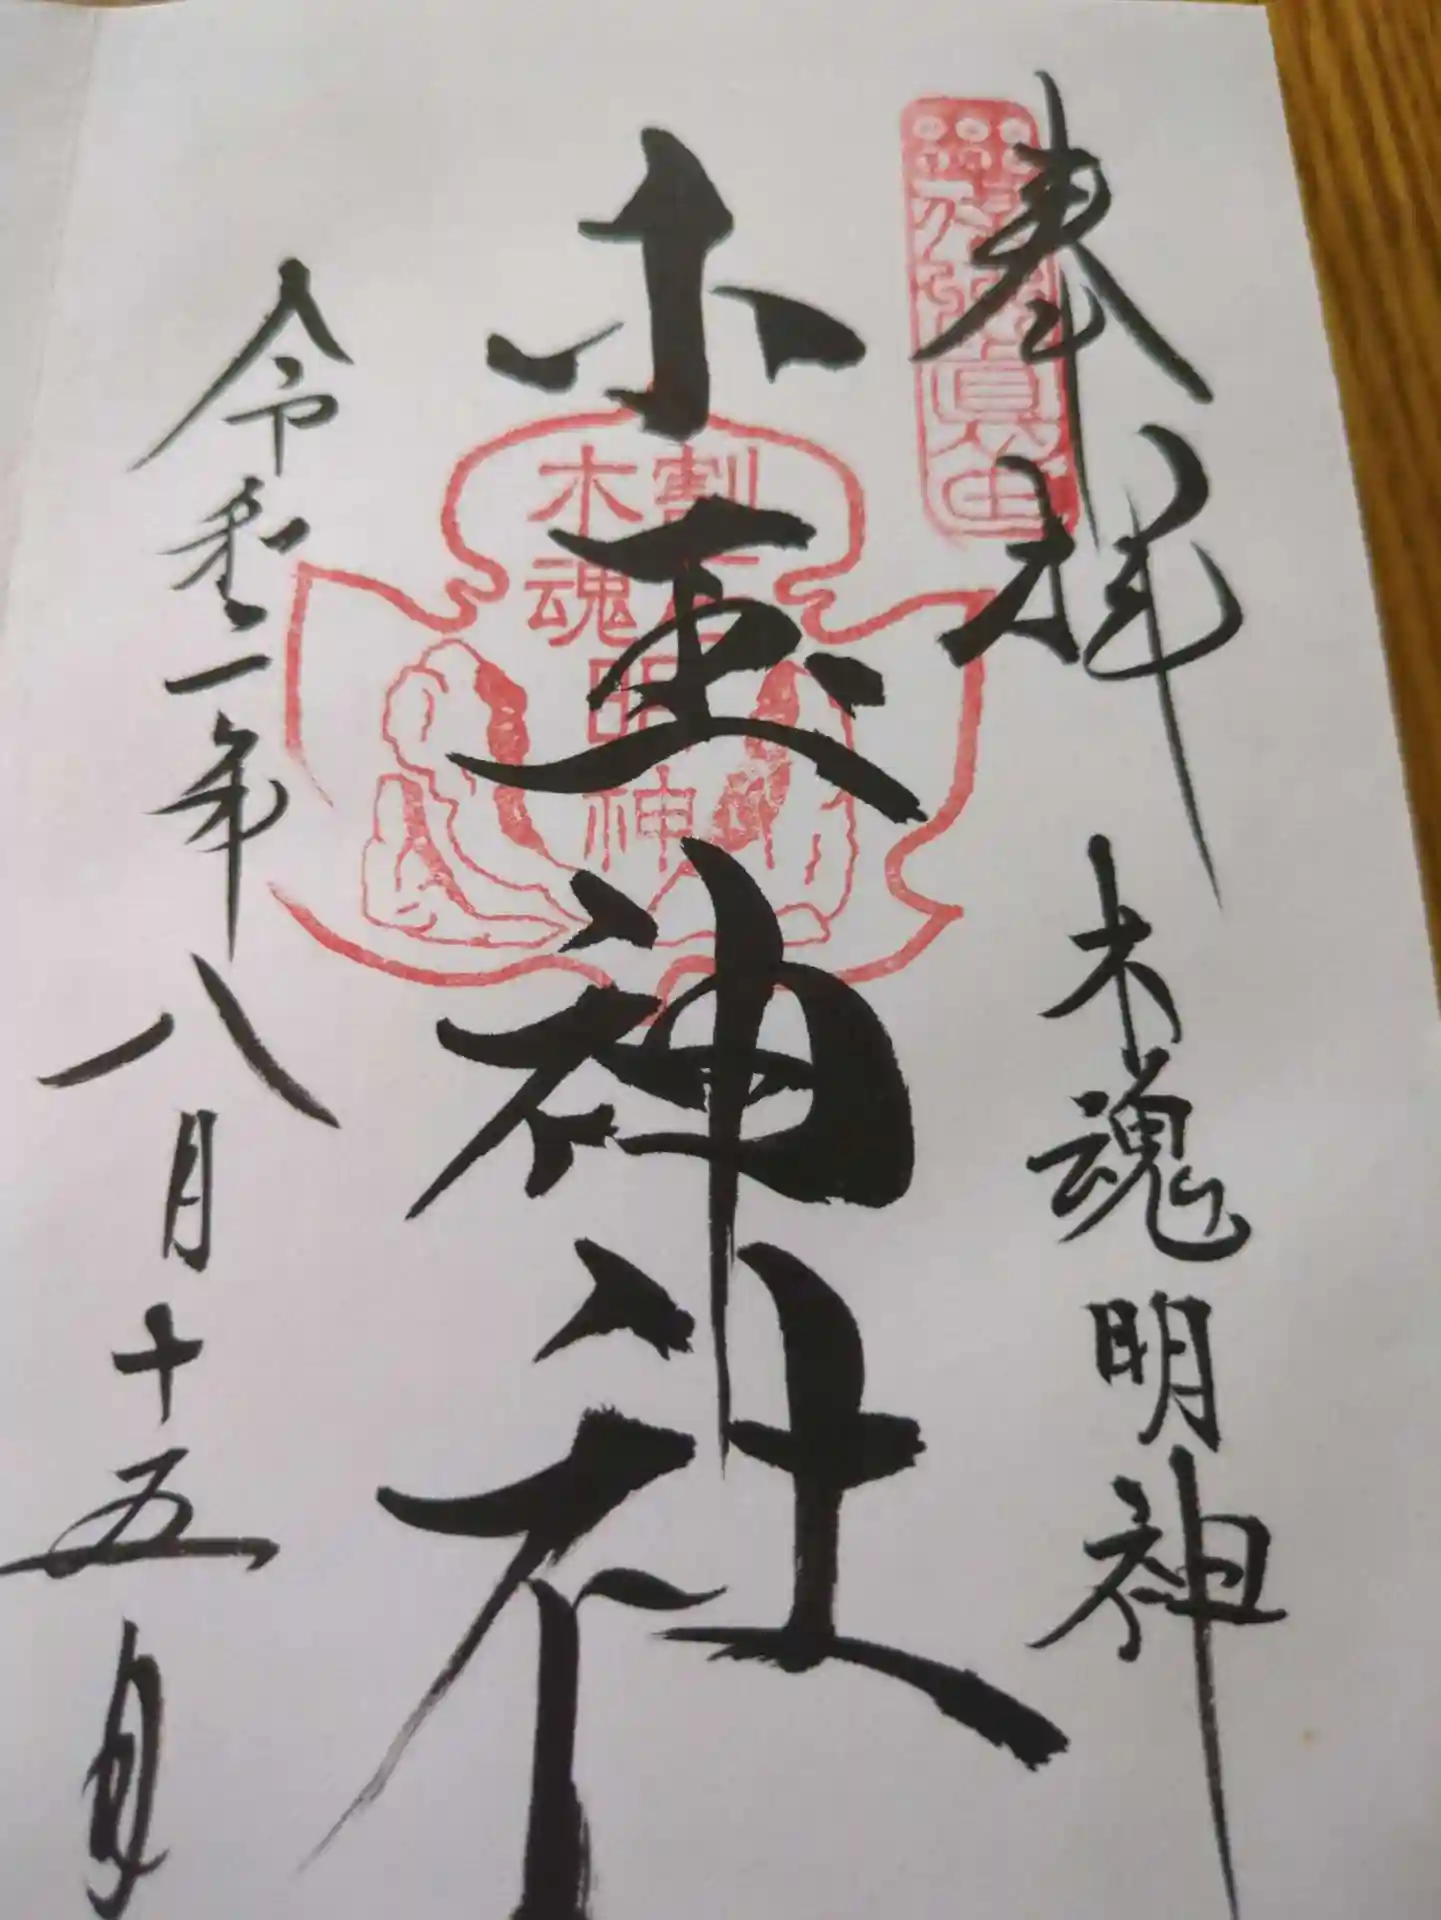 奉拝
木魂明神
木玉神社
令和二年八月十五日
木魂
明神